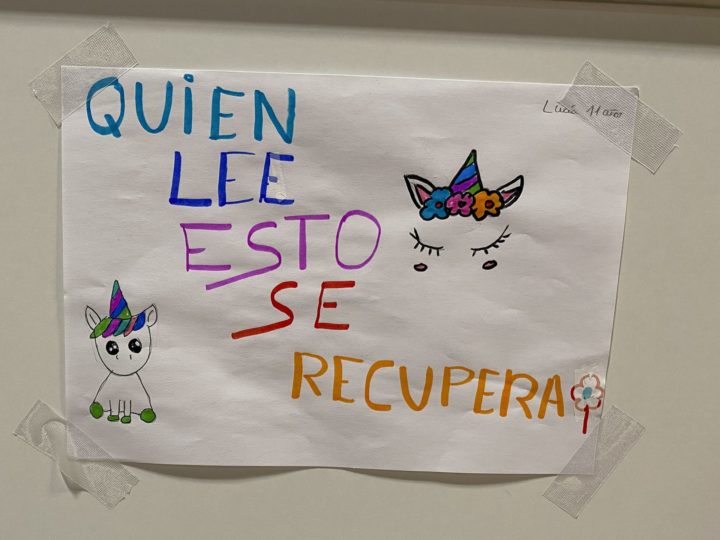 Lucía 11 años
QUiEN
LEE
ESTO
SE
RECUPERA